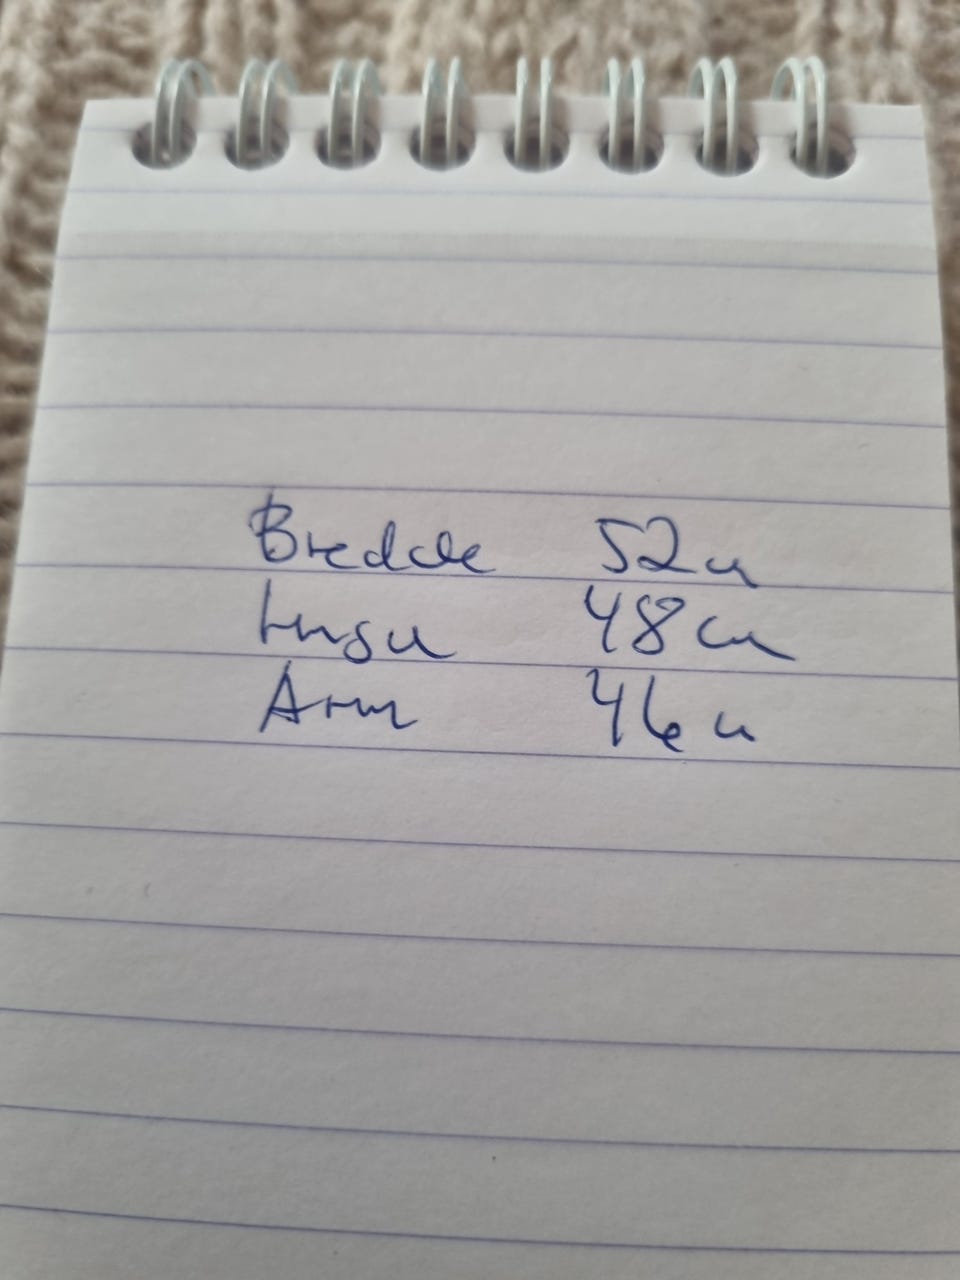 Bredde 52 cm
Lengde 48 cm
Arm 46 cm